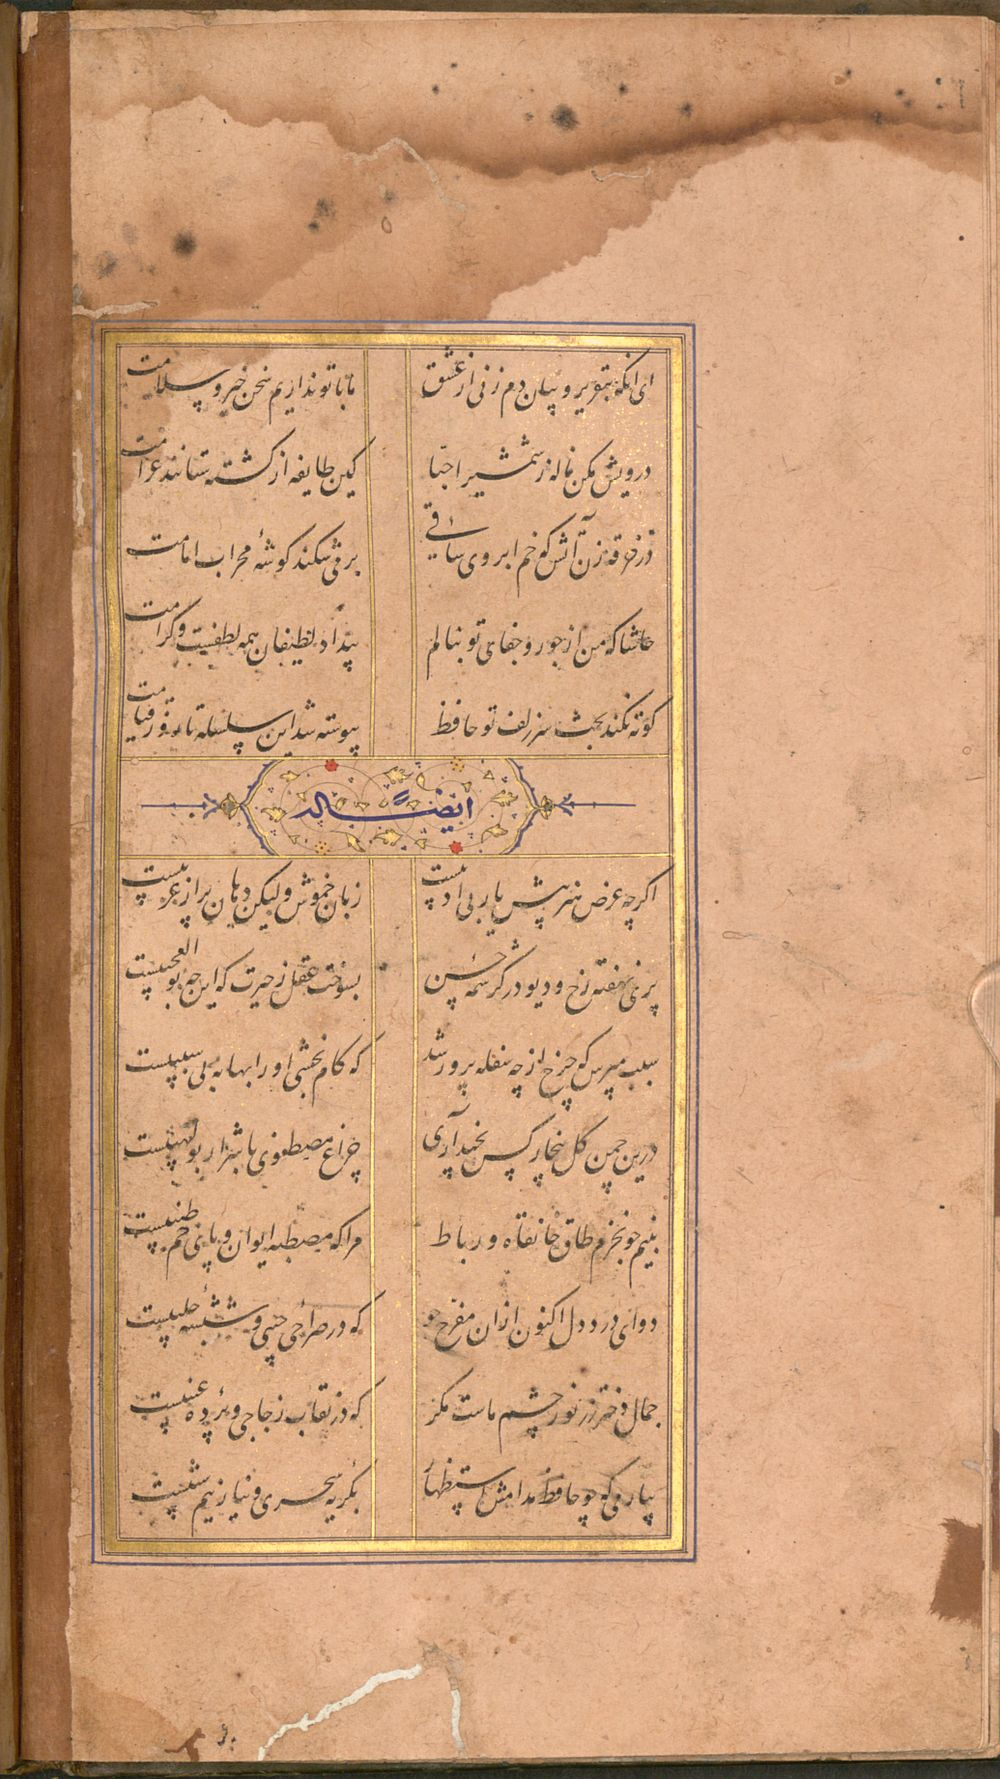 ای آنکه بتقریر و بیان دم زنی از عشق ما با تو نداریم سخن خیر و سلامت
درویش مکن ناله ز شمشیر احبا کین طایفه از کشته ستانند غرامت
در خرقه زن آتش که خم ابروی ساقی بر می شکند گوشهٔ محراب امامت
حاشا که من از جور و جفای تو بنالم بیداد لطیفان همه لطفست و کرامت
کوته نکند بحث سر زلف تو حافظ پیوسته شد این سلسله تا روز قیامت
ایضاً له
اگرچه عرض هنر پیش یار بی ادبیست زبان خموش ولیکن دهان پر از عربیست
پری نهفته رخ و دیو در کرشمهٔ حسن بسوخت عقل ز حیرت که این چه بوالعجبیست
سبب مپرس که چرخ از چه سفله پرور شد که کام بخشی او را بهانه بی سببیست
درین چمن گل بیخار کس نچید آری چراغ مصطفوی با شرار بولهبیست
بنیم جو نخرم طاق خانقاه و رباط مرا که مصطبه ایوان و پای خم طنبیست
دوای درد دل اکنون ازان مفرح جو که در صراحی چینی و شیشهٔ حلبیست
جمال دختر رز نور چشم ماست مگر که در نقاب زجاجی و پردهٔ عنبیست
بیار می که چو حافظ مدامش استظهار بگریهٔ سحری و نیاز نیم شبیست